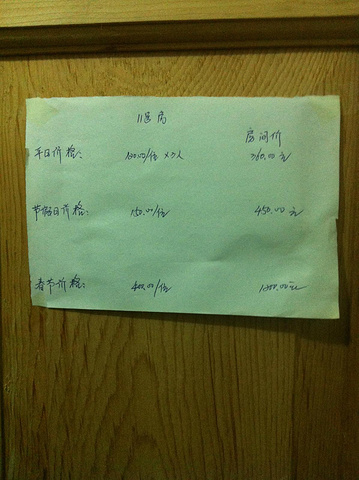 房
房间价
平日价格: 120.00/位 ×3人 360.00元
节假日价格: 150.00/位 450.00元
春节价格: 400.00/位 1200.00元